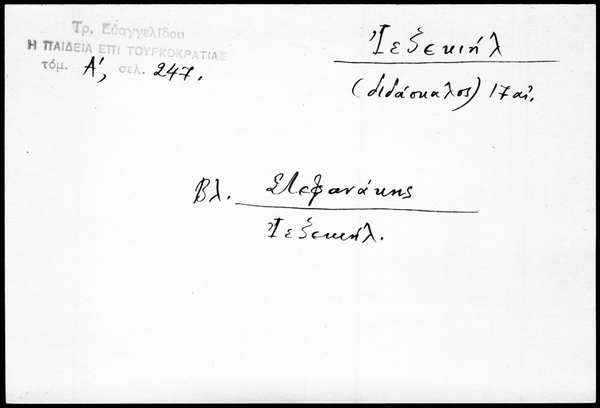 Τρ. Εὐαγγελίδου
Η ΠΑΙΔΕΙΑ ΕΠΙ ΤΟΥΡΚΟΚΡΑΤΙΑΣ
τόμ. Α', σελ. 247.
Ἰεζεκιήλ
(διδάσκαλος) 17 αἰ.
Βλ. Στεφανάκης
Ἰεζεκιήλ.